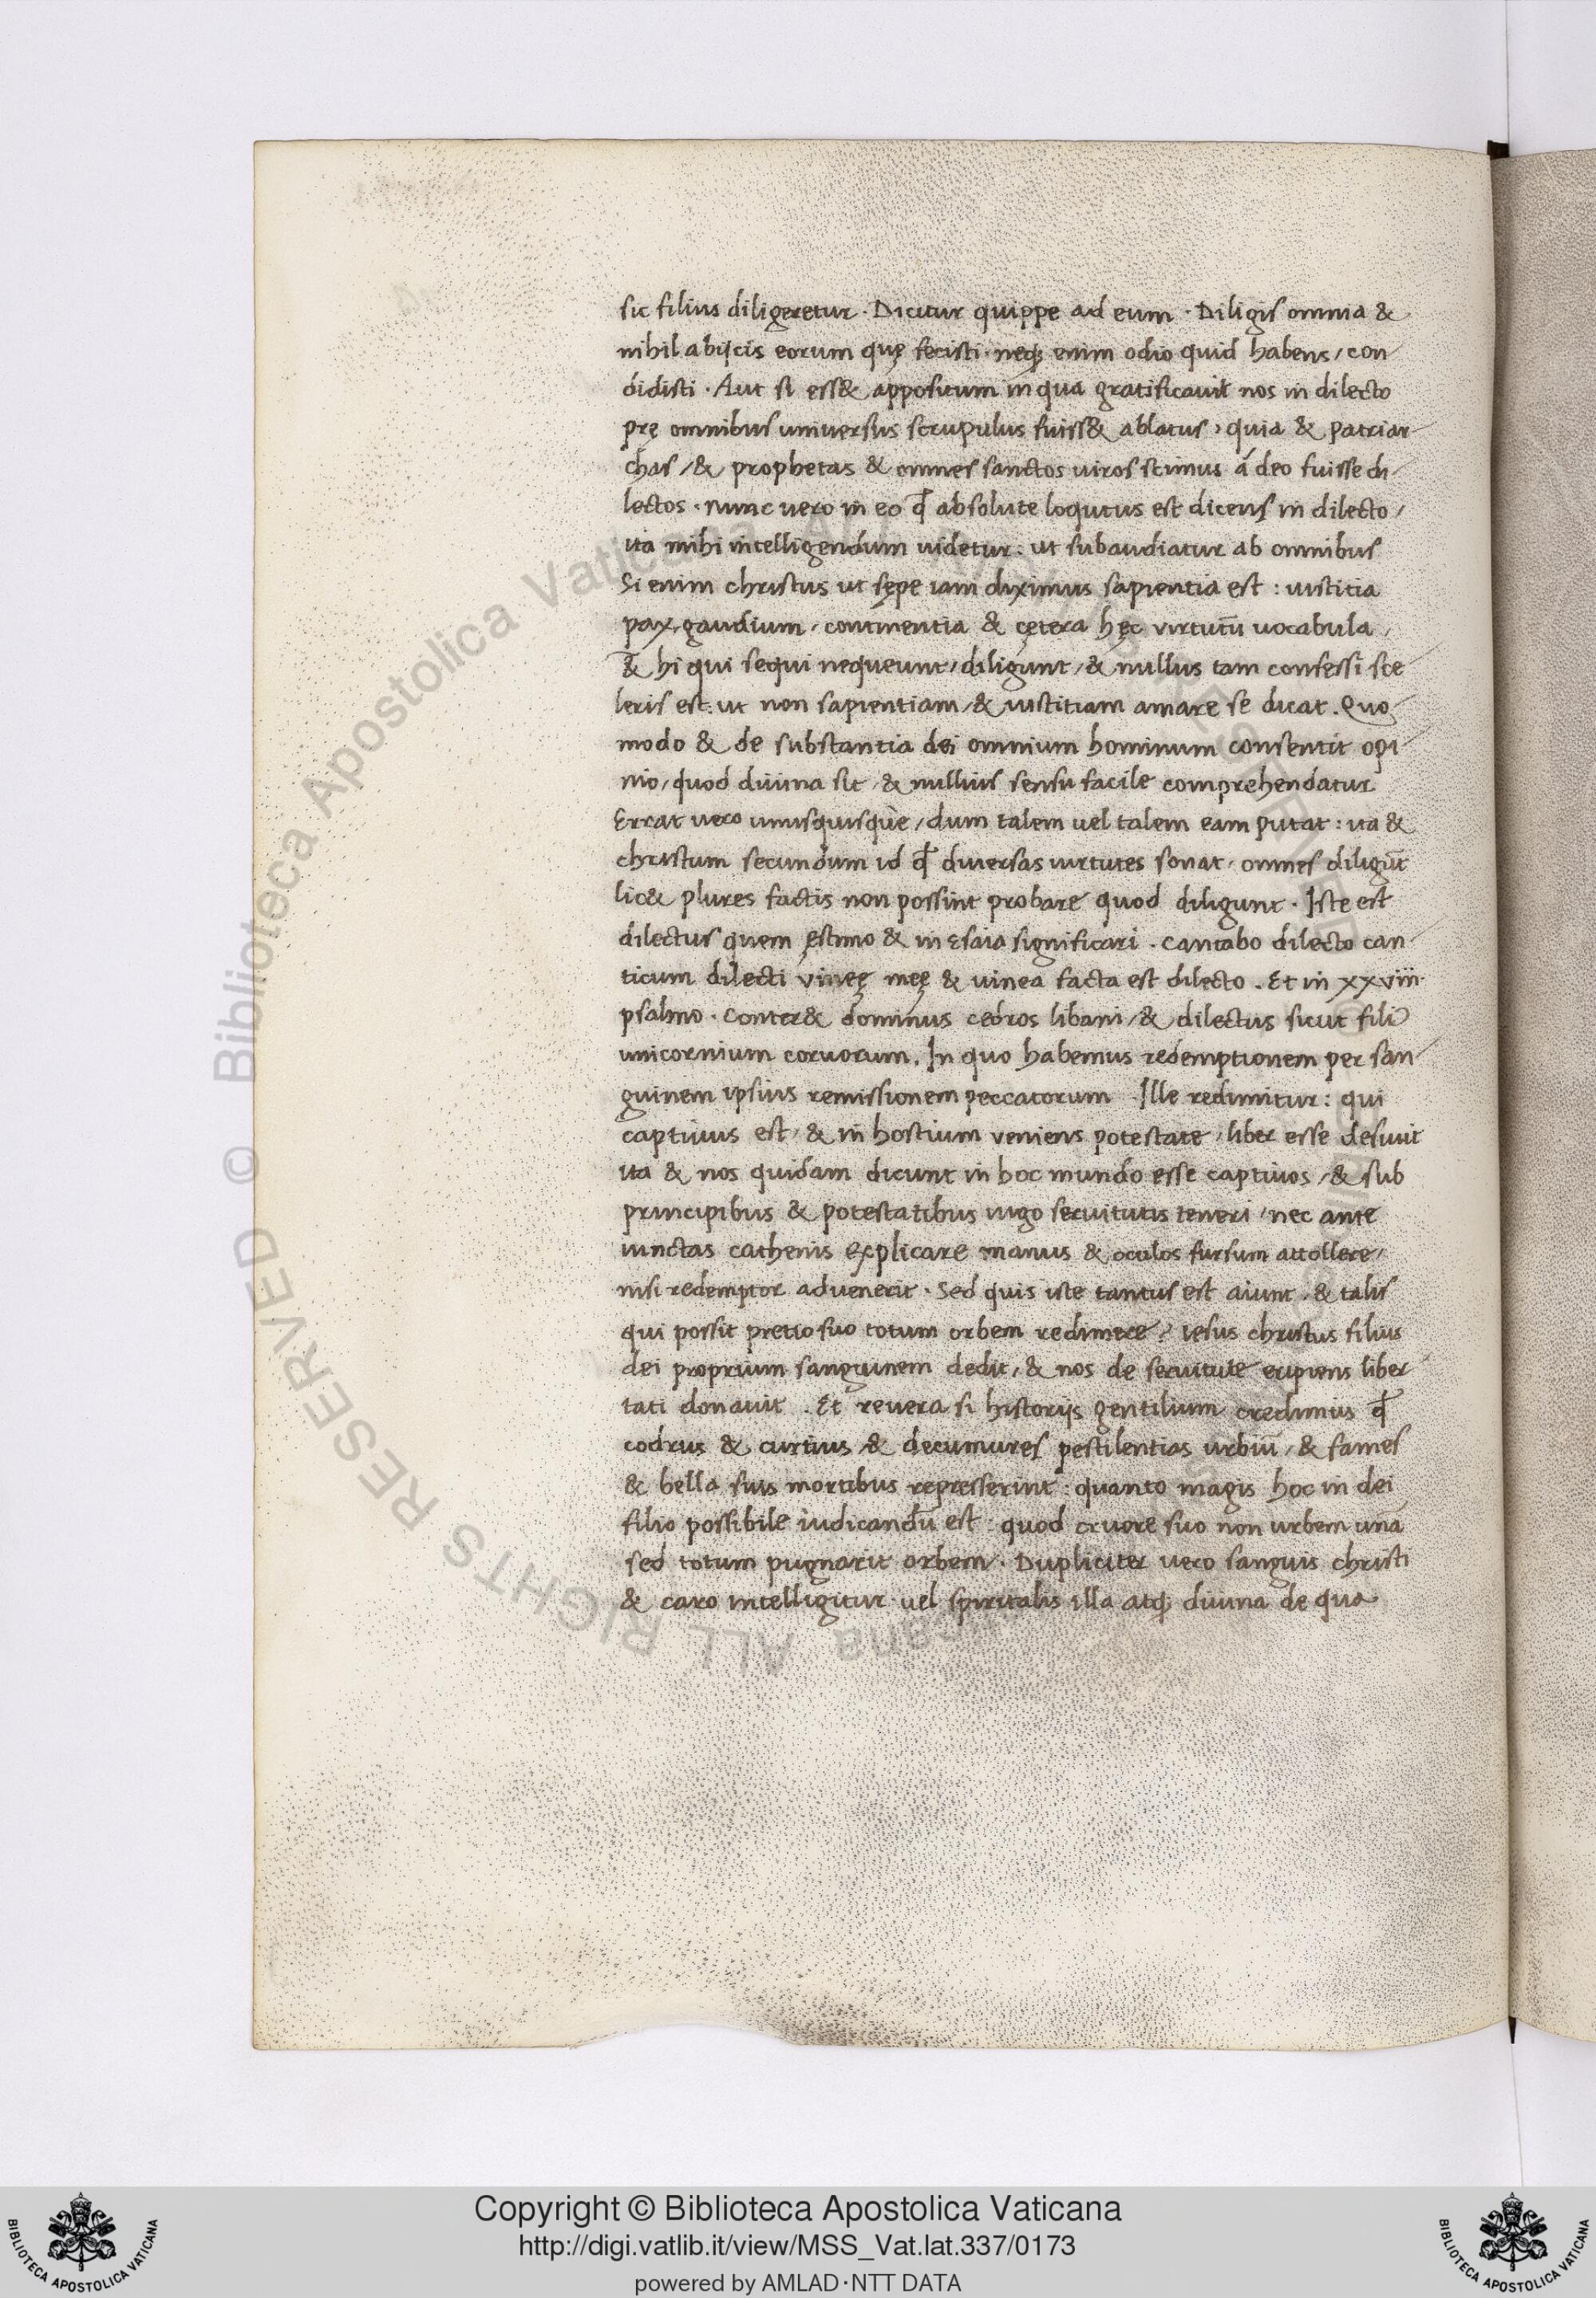 sic filius diligeretur · Dicitur quippe ad eum · Diligis omnia &
nihil abijcis eorum quę fecisti · neqꝫ enim odio quid habens / con
didisti · Aut si ess& appositum in qua gratificavit nos in dilecto
prę omnibus universus scrupulus fuiss& ablatus , quia & patriar
chas / & prophetas & omnes sanctos viros scimus á deo fuisse di
lectos · nunc vero in eo qđ absolute loqutus est dicens in dilecto /
ita mihi intelligendum videtur : ut subaudiatur ab omnibus
Si enim christus ut sępe iam diximus sapientia est : iustitia
pax, gaudium , continentia & cętera hęc virtutū vocabula ,
& hi qui sequi nequeunt / diligunt / & nullus tam confessi sce
leris est : ut non sapientiam / & iustitiam amare se dicat . Quo
modo & de substantia dei omnium hominum consentit opi
nio / quod divina sit / & nullius sensu facile comprehendatur
Errat vero unusquisque / dum talem vel talem eam putat : ita &
christum secundum id qđ diversas virtutes sonat / omnes diligūt
lic& plures factis non possint probare quod diligunt · Iste est
dilectus quem ęstimo & in Esaia significari . Cantabo dilecto can
ticum dilecti vineę meę & vinea facta est dilecto . Et in xxviii
psalmo · Conter& dominus cedros libani / & dilectus sicut fili
unicornium cornorum . In quo habemus redemptionem per san
guinem ipsius remissionem peccatorum · Ille redimitur : qui
captivus est / & in hostium veniens potestate / liber esse desivit
ita & nos quidam dicunt in hoc mundo esse captivos / & sub
principibus & potestatibus iugo servitutis teneri / nec ante
vinctas cathenis explicare manus & oculos sursum attollere /
nisi redemptor advenerit · Sed quis iste tantus est aiunt , & talis
qui possit pretio suo totum orbem redimere ? iesus christus filius
dei proprium sanguinem dedit , & nos de servitute eripiens liber
tati donavit . Et revera si historijs gentilium credimus qđ
codrus & curtius & decumures pestilentias urbiū / & fames
& bella suis mortibus represserint : quanto magis hoc in dei
filio possibile iudicandū est : quod cruore suo non urbem unā
sed totum pugnarit orbem . Dupliciter vero sanguis christi
& caro intelligitur · vel spiritalis illa atqꝫ divina de qua
© Biblioteca Apostolica Vaticana ALL RIGHTS RESERVED
Copyright © Biblioteca Apostolica Vaticana
http://digi.vatlib.it/view/MSS_Vat.lat.337/0173
powered by AMLAD·NTT DATA
BIBLIOTECA APOSTOLICA VATICANA
BIBLIOTECA APOSTOLICA VATICANA